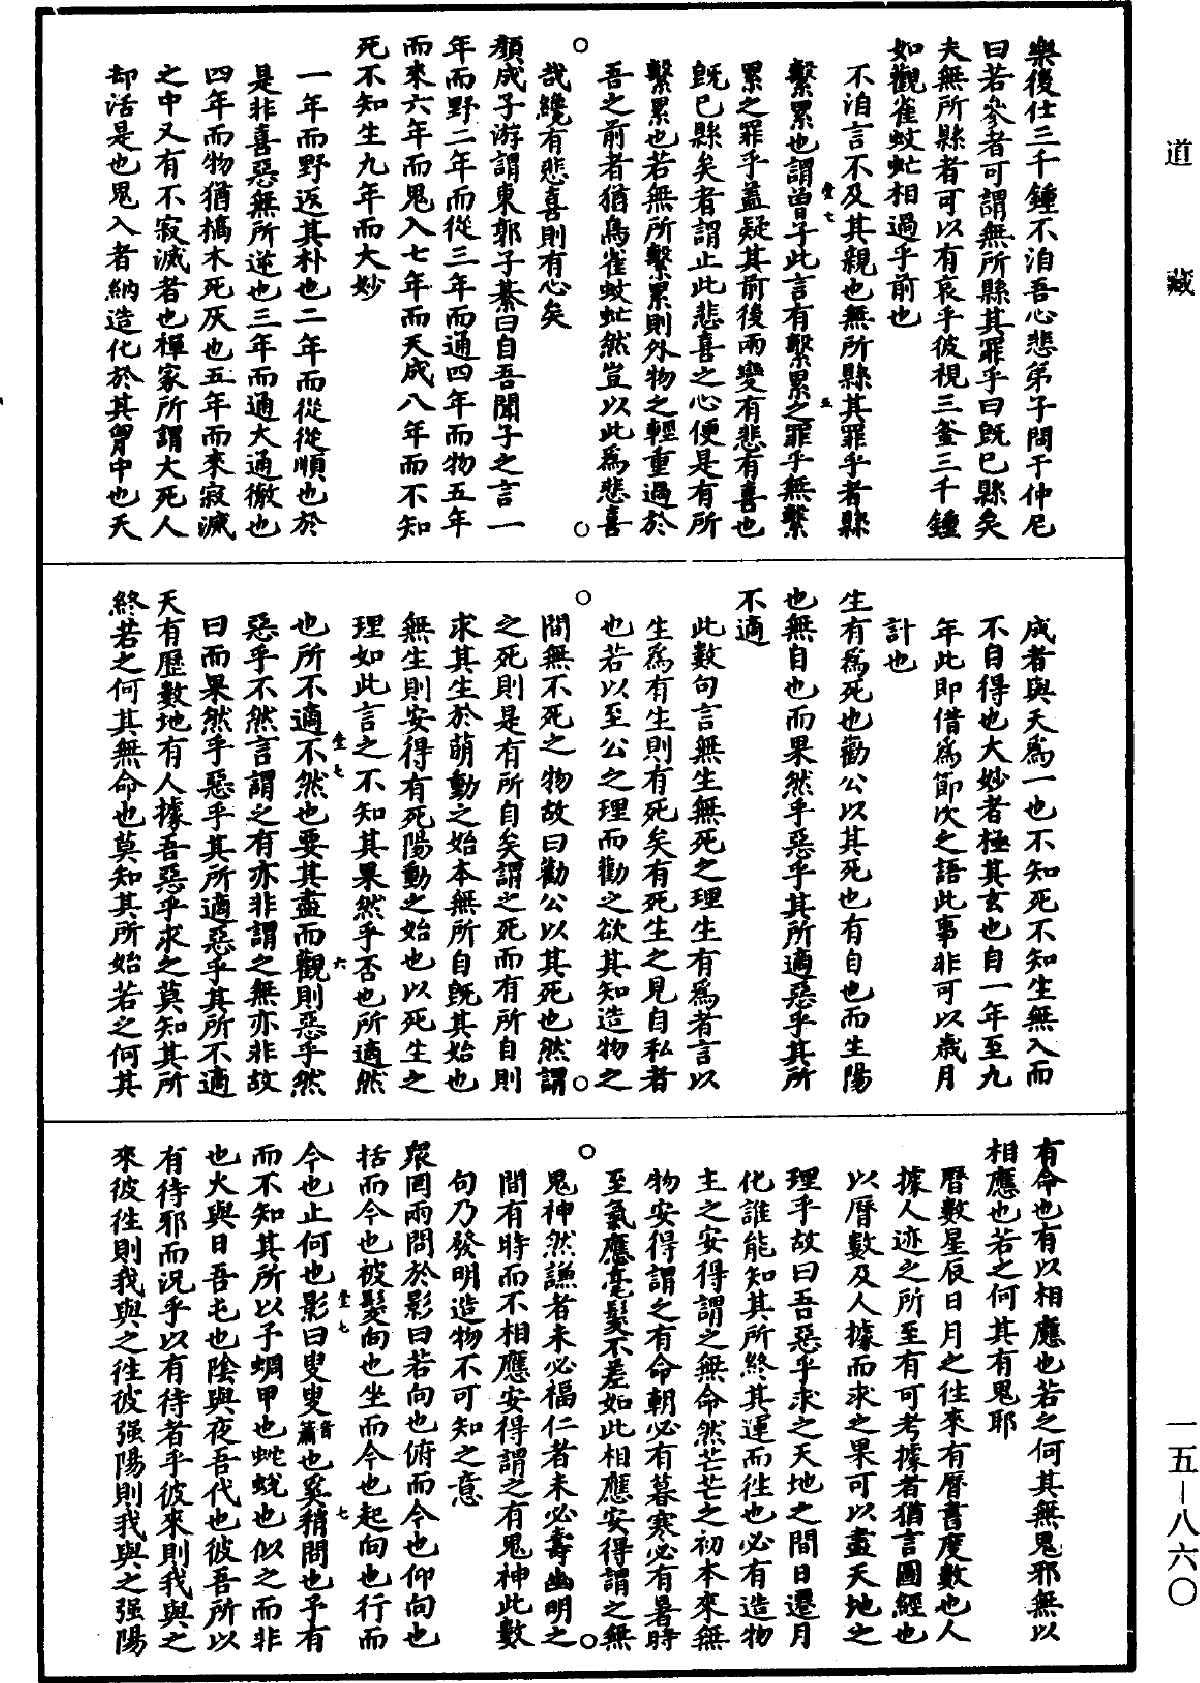 樂後仕三千鍾不洎吾心悲弟子問于仲尼
曰若參者可謂無所縣其罪乎曰旣已縣矣
夫無所縣者可以有哀乎彼視三釜三千鍾
如觀雀蚊虻相過乎前也
不洎言不及其親也無所縣其罪乎者縣
繫累也謂曾子此言有繫累之罪乎無繫
累之罪乎蓋疑其前後兩變有悲有喜也
旣已縣矣者謂止此悲喜之心便是有所
繫累也若無所繫累則外物之輕重過於
吾之前者猶鳥雀蚊虻然豈以此爲悲喜
哉纔有悲喜則有心矣
顏成子游謂東郭子綦曰自吾聞子之言一
年而野二年而從三年而通四年而物五年
而來六年而鬼入七年而天成八年而不知
死不知生九年而大妙
一年而野返其朴也二年而從從順也於
是非喜惡無所逆也三年而通大通徹也
四年而物猶槁木死灰也五年而來寂滅
之中又有不寂滅者也禪家所謂大死人
却活是也鬼入者納造化於其胷中也天
成者與天爲一也不知死不知生無入而
不自得也大妙者極其玄也自一年至九
年此即借爲節次之語此事非可以歲月
計也
生有爲死也勸公以其死也有自也而生陽
也無自也而果然乎惡乎其所適惡乎其所
不適
此數句言無生無死之理生有爲者言以
生爲有生則有死矣有死生之見自私者
也若以至公之理而勸之欲其知造物之
間無不死之物故曰勸公以其死也然謂
之死則是有所自矣謂之死而有所自則
求其生於萌動之始本無所自旣其始也
無生則安得有死陽動之始也以死生之
理如此言之不知其果然乎否也所適然
也所不適不然也要其盡而觀則惡乎然
惡乎不然言謂之有亦非謂之無亦非故
曰而果然乎惡乎其所適惡乎其所不適
天有歷數地有人據吾惡乎求之莫知其所
終若之何其無命也莫知其所始若之何其
有命也有以相應也若之何其無鬼邪無以
相應也若之何其有鬼耶
曆數星辰日月之往來有曆書度數也人
據人迹之所至有可考據者猶言圖經也
以曆數及人據而求之果可以盡天地之
理乎故曰吾惡乎求之天地之間日還月
化誰能知其所終其運而往也必有造物
主之安得謂之無命然芒芒之初本來無
物安得謂之有命朝必有暮寒必有暑時
至氣應毫髮不差如此相應安得謂之無
鬼神然謙者未必福仁者未必壽幽明之
間有時而不相應安得謂之有鬼神此數
句乃發明造物不可知之意
衆罔兩問於影曰若向也俯而今也仰向也
括而今也被髮向也坐而今也起向也行而
今也止何也影曰叟叟音蕭也奚稍問也予有
而不知其所以予蜩甲也蛇蛻也似之而非
也火與日吾屯也陰與夜吾代也彼吾所以
有待邪而況乎以有待者乎彼來則我與之
來彼往則我與之往彼强陽則我與之强陽
道藏
一五—八六〇